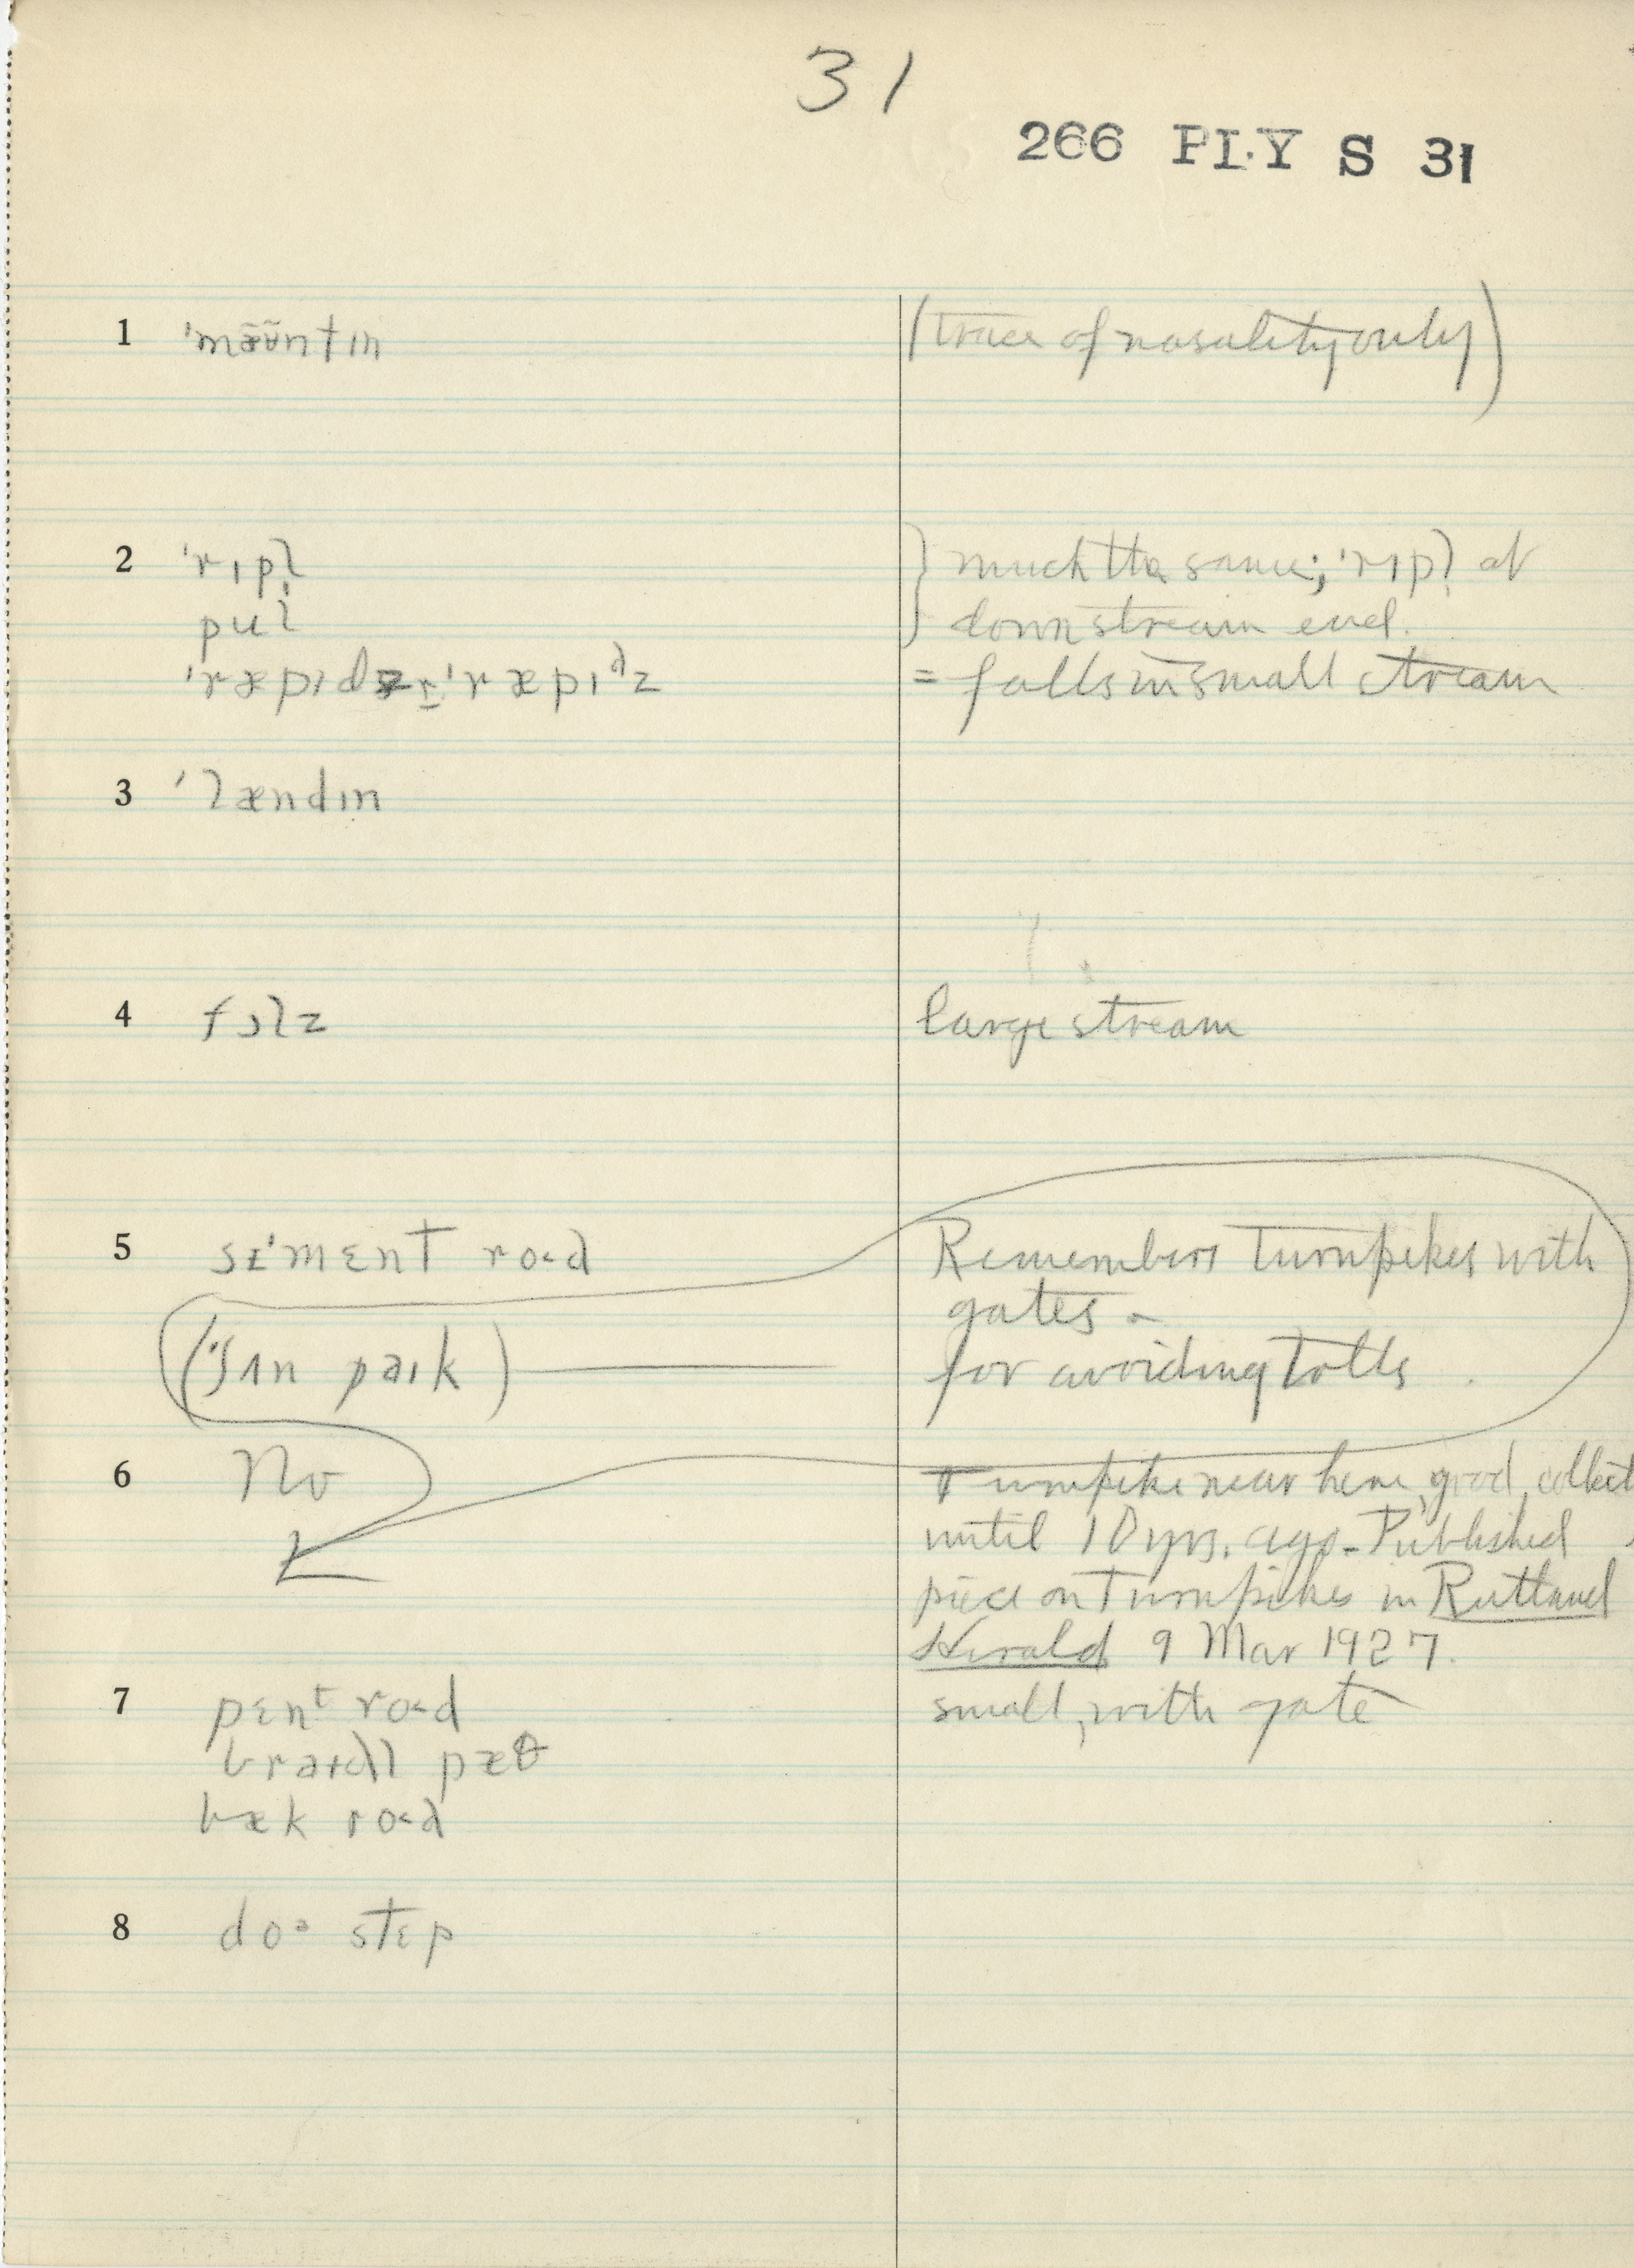 31
266 PLY S 31
1 'mæ̃ʊ̃ntɪn (trace of nasality only)
2 'rɪpl̩ } much the same; 'rɪpl̩ at
pul } downstream end.
'ræpɪdz r̲ 'ræpɪᵈz = falls in small stream
3 'lændɪn
4 fɔlz large stream
5 sɪ'mɛnt road Remembers turnpikes with
gates -
(ʃʌn paɪk) for avoiding tolls.
6 No Turnpike near here, good, collect
until 10 yrs. ago. Published
piece on Turnpikes in Rutland
Herald 9 Mar 1927.
7 pɛnᵗ road small, with gate
braɪdl pæθ
bæk road
8 doᵊ stɛp